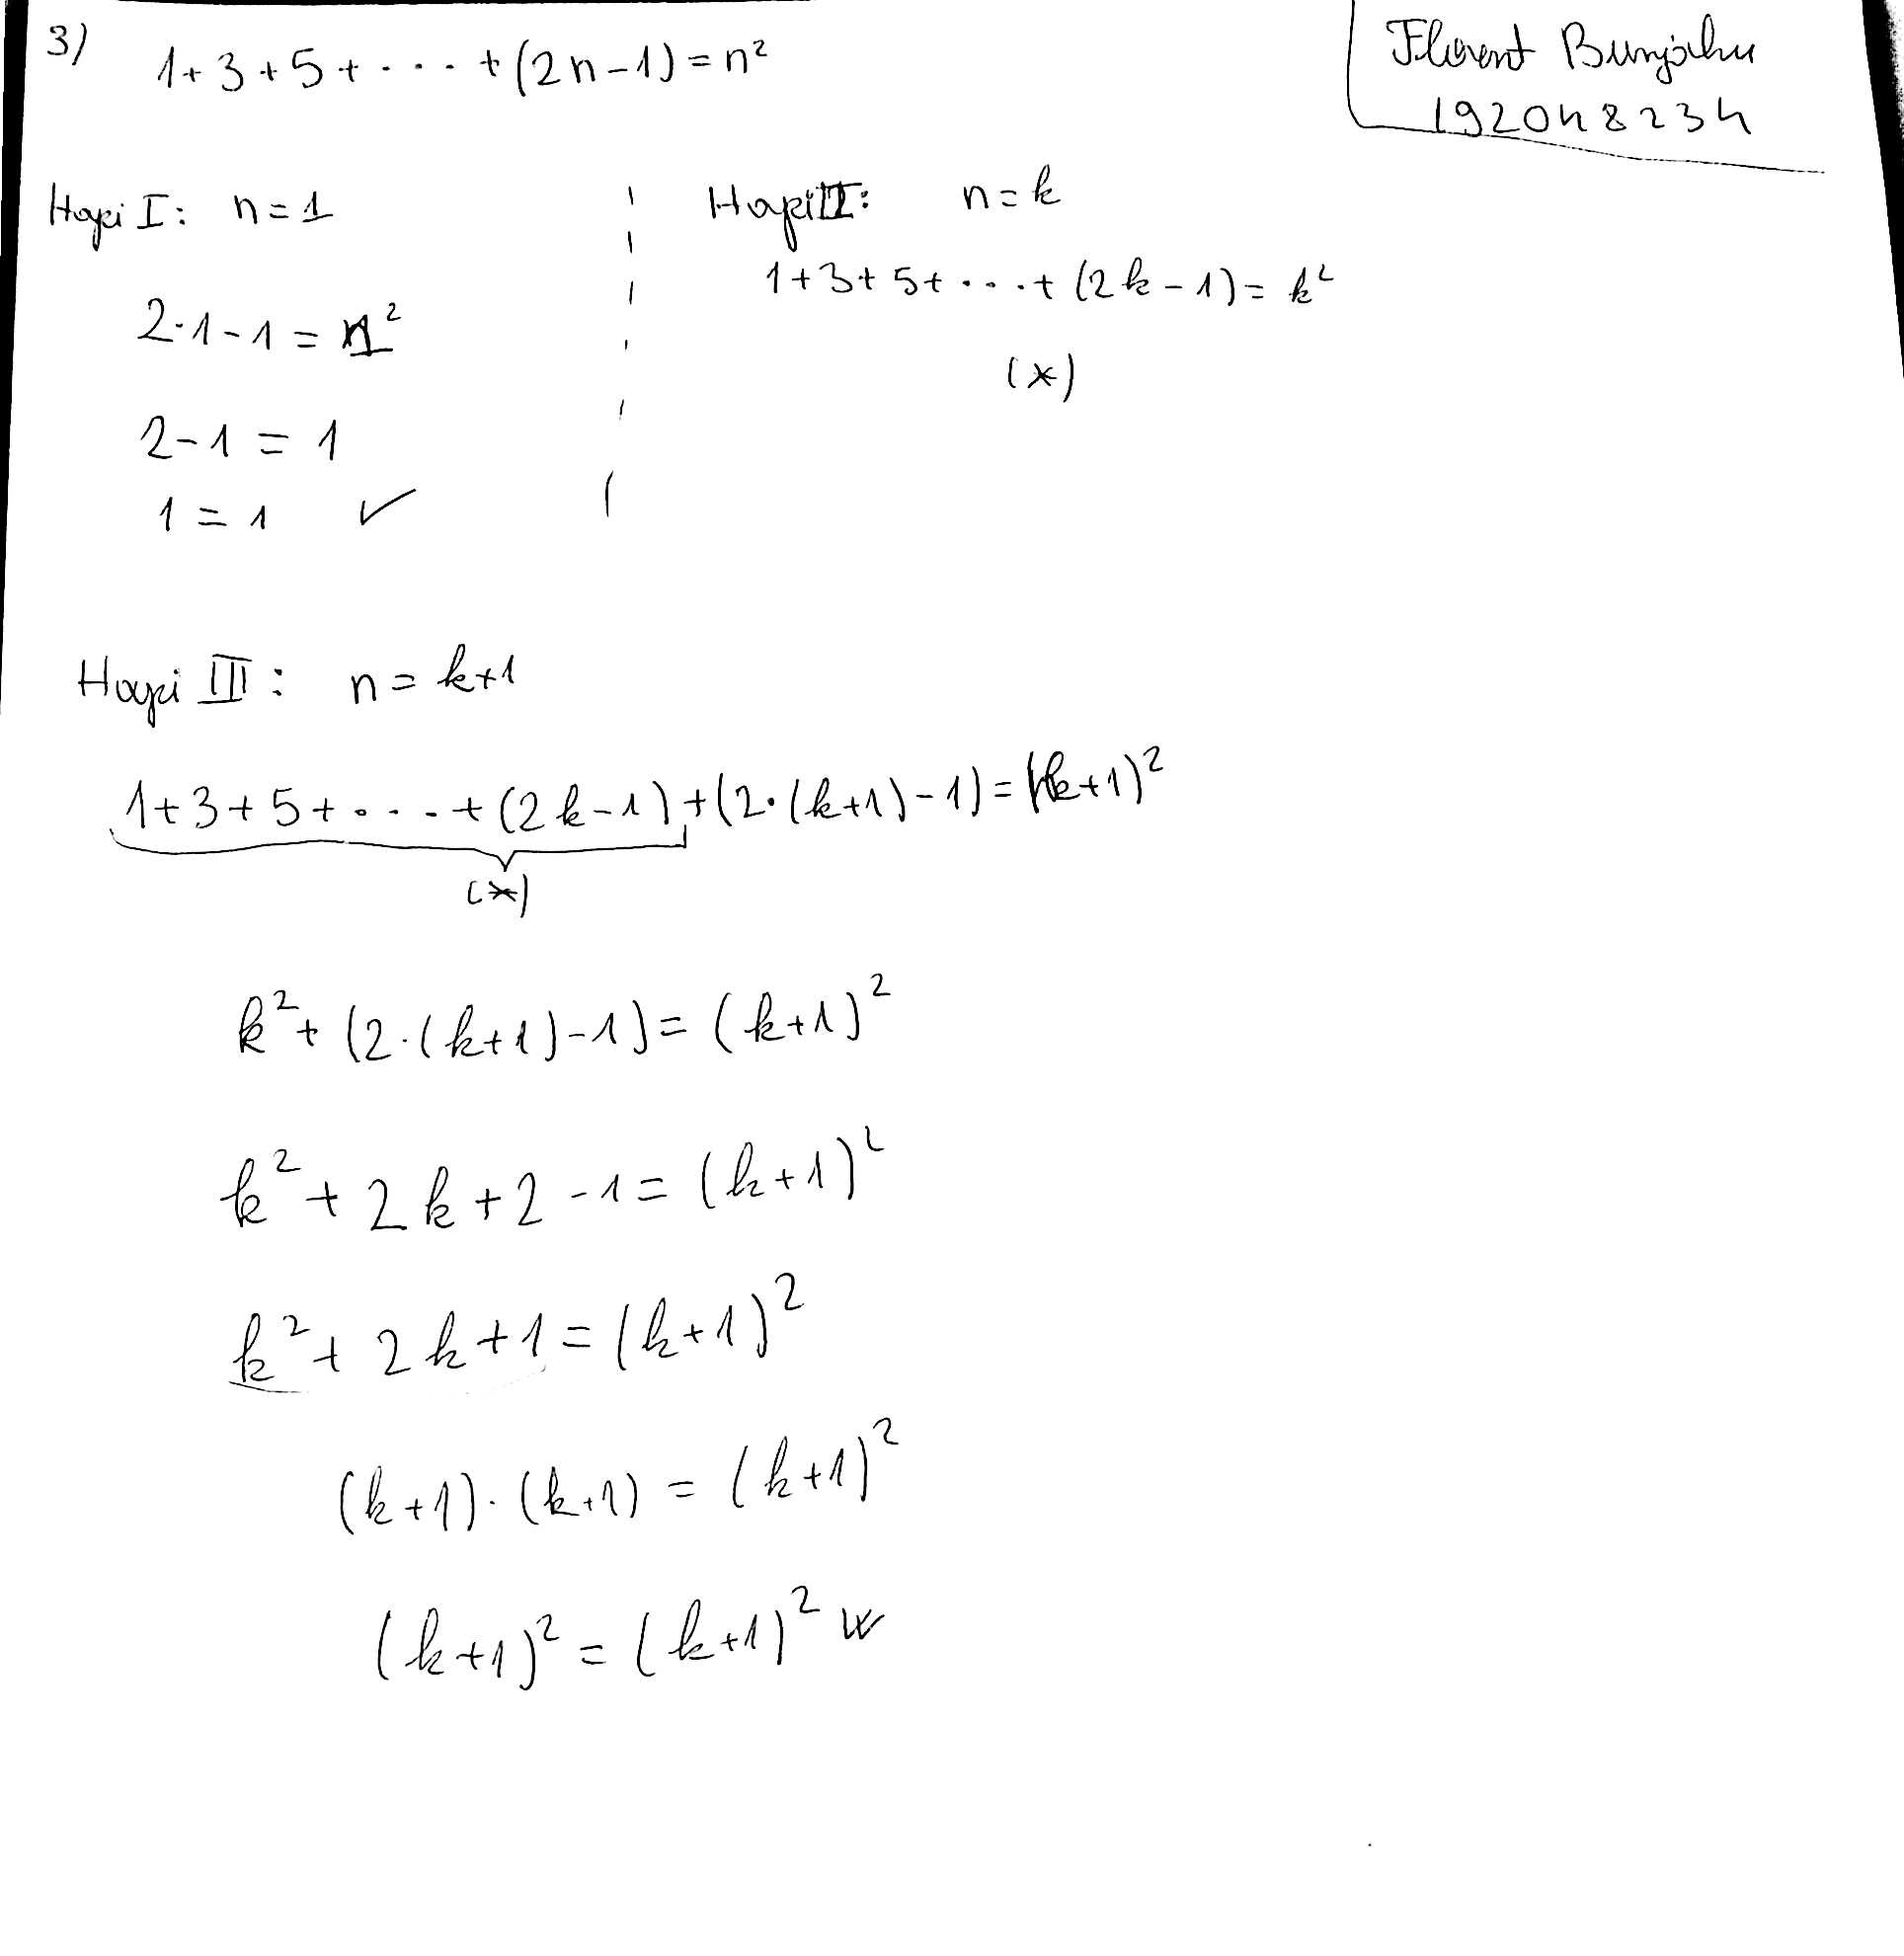 3) 1+3+5+....+(2n-1)=n²
Florent Bunjaku
192048234
Hapi I: n=1
2·1-1=1²
2-1=1
1=1 ✓
Hapi II: n=k
1+3+5+....+(2k-1)=k²
(*)
Hapi III: n=k+1
1+3+5+....+(2k-1)+(2·(k+1)-1)=(k+1)²
(*)
k²+(2·(k+1)-1)=(k+1)²
k²+2k+2-1=(k+1)²
k²+2k+1=(k+1)²
(k+1)·(k+1)=(k+1)²
(k+1)²=(k+1)² ✓